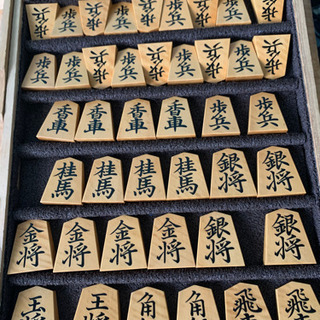 歩兵 歩兵 歩兵 歩兵 歩兵 歩兵 歩兵 歩兵 歩兵
歩兵 歩兵 歩兵 歩兵 歩兵 歩兵 歩兵 歩兵 歩兵
香車 香車 香車 香車 歩兵 歩兵
桂馬 桂馬 桂馬 桂馬 銀将 銀将
金将 金将 金将 金将 銀将 銀将
玉将 王将 角 角 飛 飛